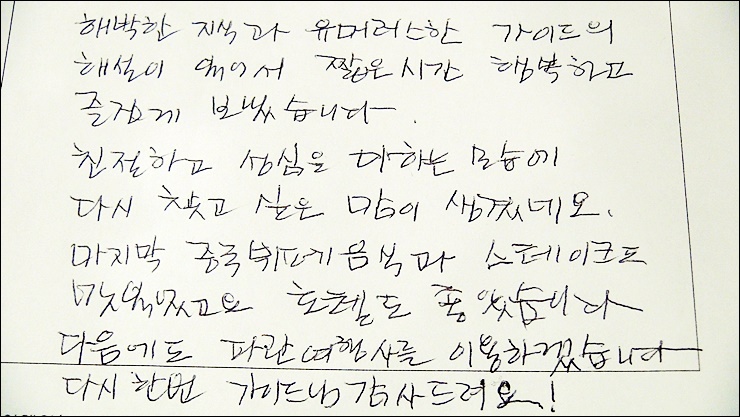 해박한 지식과 유머러스한 가이드의
해설이 있어서 짧은 시간 행복하고
즐겁게 보냈습니다.
친절하고 성심을 다하는 모습에
다시 찾고 싶은 맘이 생겼네요.
마지막 중국 뷔페기음식과 스테이크도
맛있었고요 호텔도 좋았습니다
다음에도 파란여행사를 이용하겠습니다
다시한번 가이드님 감사드려요!